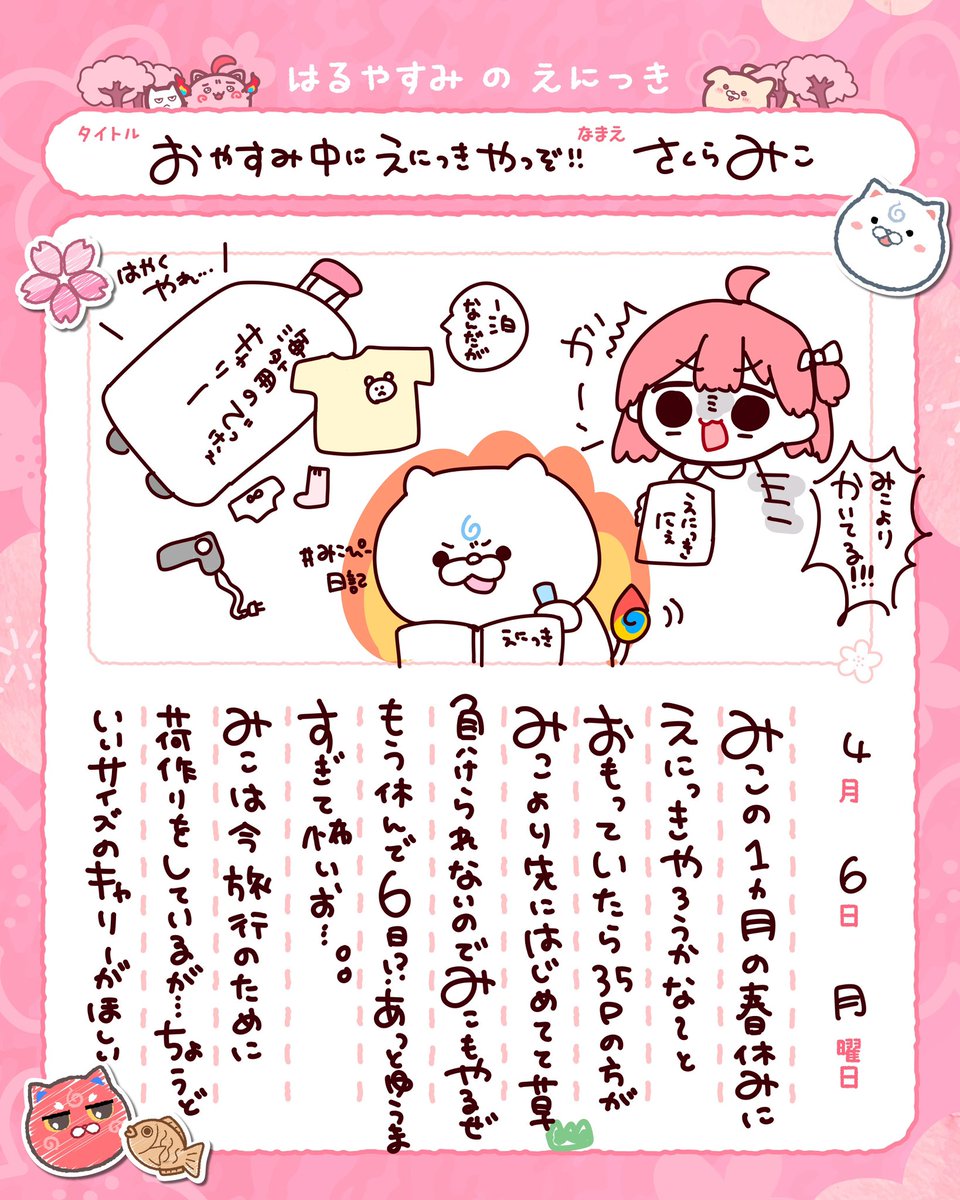 はるやすみ の えにっき
タイトル
おやすみ中に えにっき やっぞ!!
なまえ
さくらみこ
はやく
やれ…
キャリー
一泊
なんだが
ガーン
えにっき
にぇ
みこより
かいてる!!!
#みこぴー
日記
えにっき
4月6日月曜日
みこの1ヵ月の春休みに
えにっきやろうかな〜と
おもっていたら35Pの方が
みこより先にはじめてて草
負けられないのでみこもやるぜ
もう休んで6日!?あっとゆうま
すぎて怖いお…。。
みこは今旅行のために
荷作りをしているが…ちょうど
いいサイズのキャリーがほしい